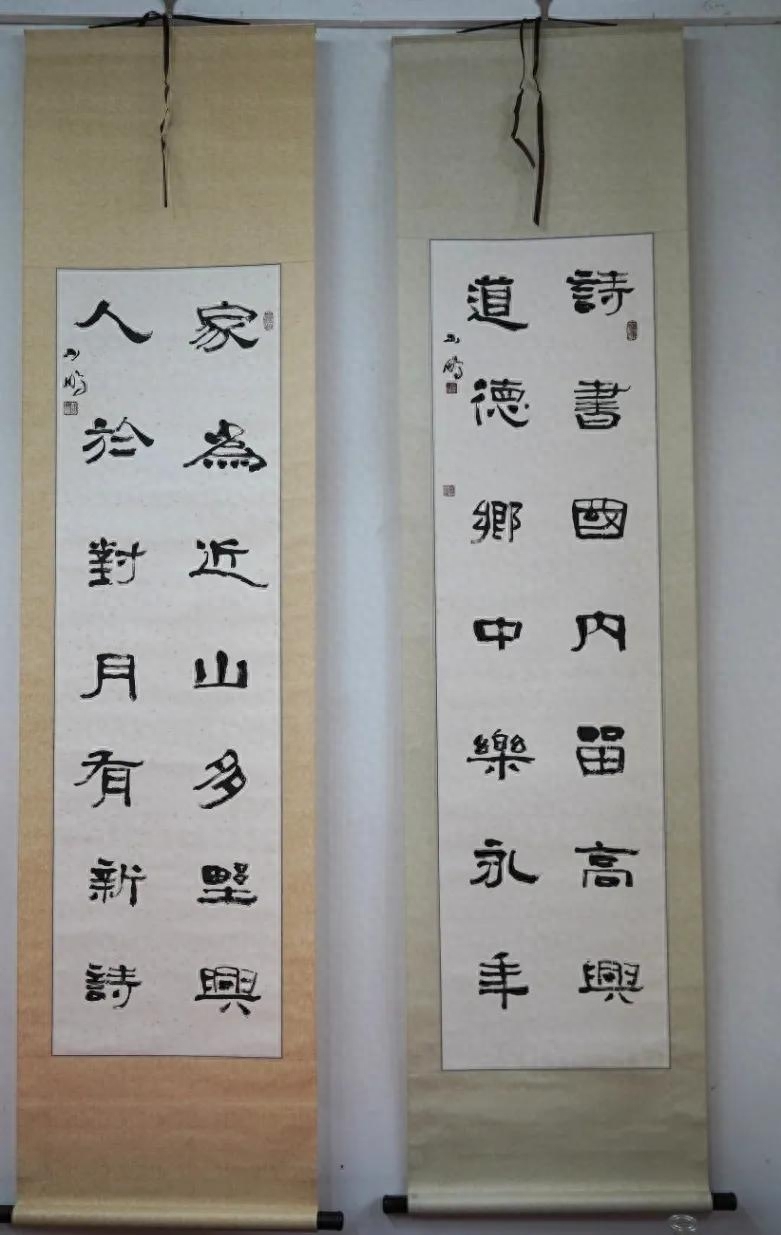 詩書國内留高興
道德鄉中樂永年
家為近山多野興
人於對月有新詩